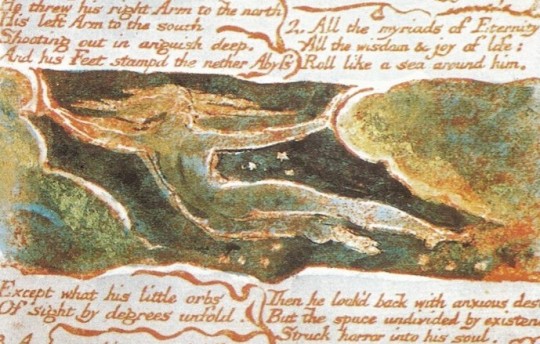 He threw his right Arm to the north
His left Arm to the south
Shooting out in anguish deep,
And his Feet stampd the nether Abyſs
2. All the myriads of Eternity
All the wisdom & joy of life:
Roll like a sea around him,
Except what his little orbs
Of sight by degrees unfold.
Then he look'd back with anxious des
But the space undivided by existen
Struck horror into his soul.